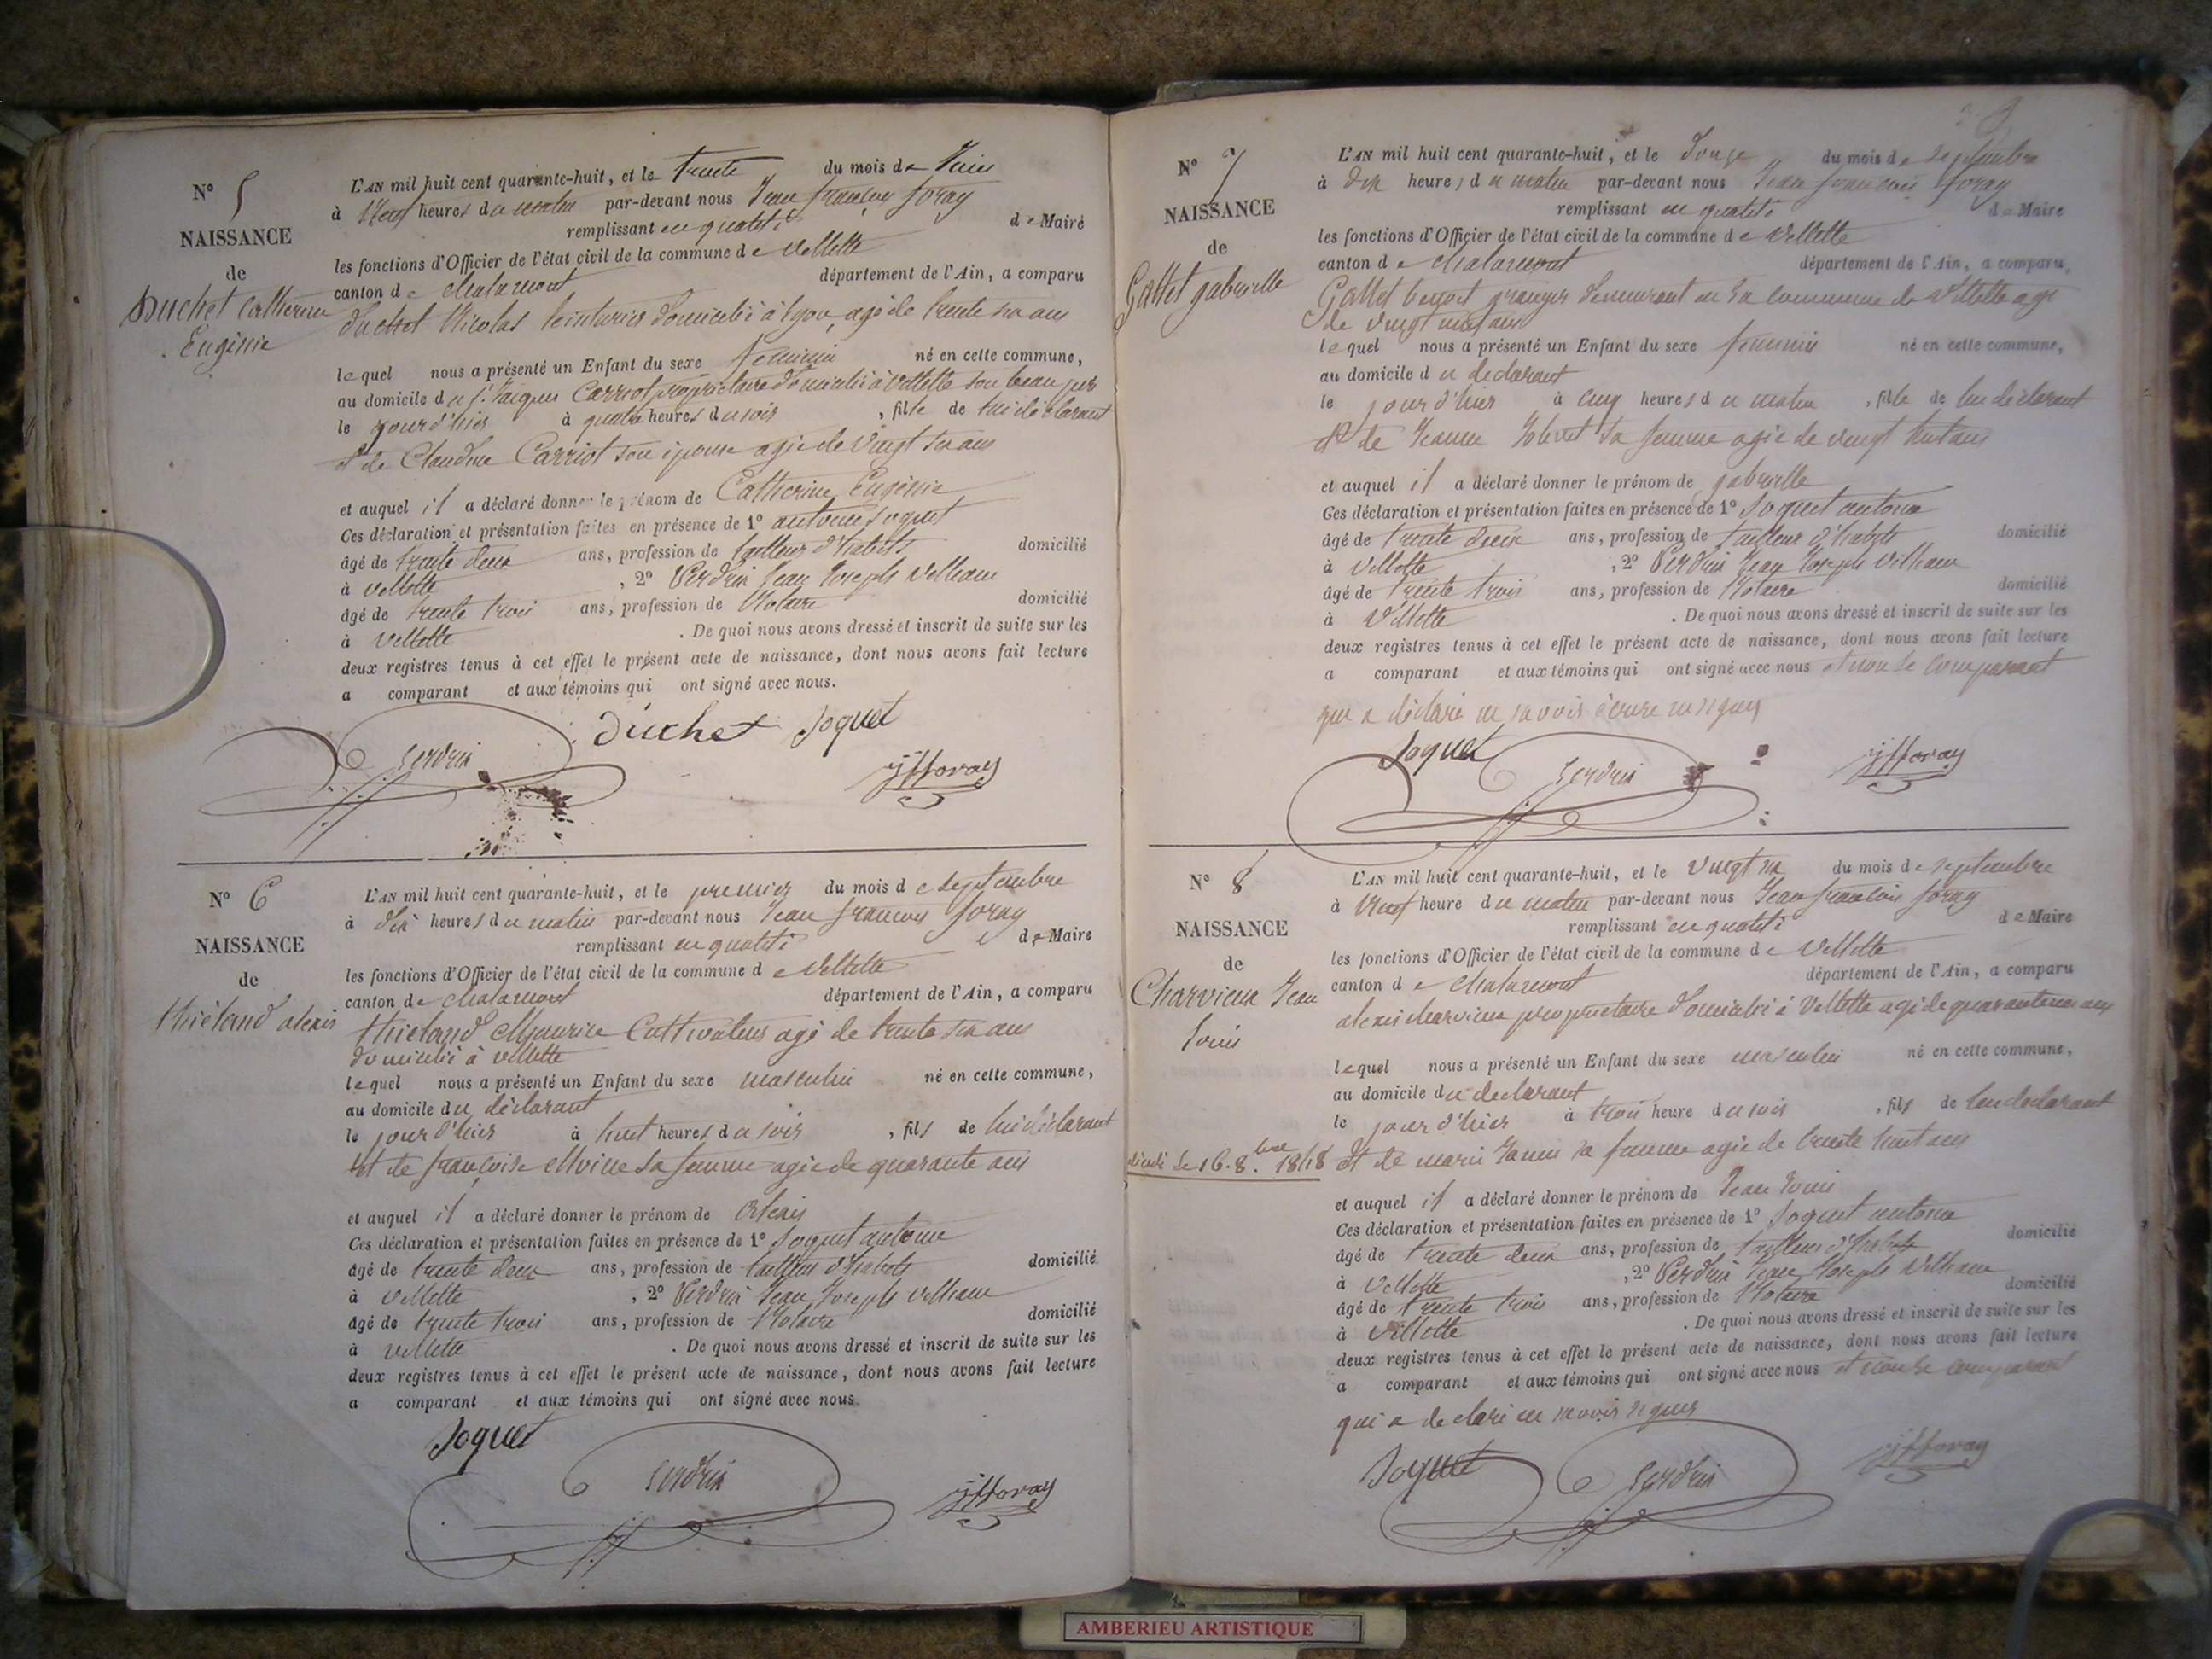 N° 5
NAISSANCE
de
Duchet Catherine
Eugénie
L'AN mil huit cent quarante-huit, et le trente du mois de Juin
à Neuf heures du matin par-devant nous Jean françois foray
remplissant en qualité de Maire
les fonctions d'Officier de l'état civil de la commune de Villette
canton de Chalamont département de l'Ain, a comparu
duchet Nicolas teinturier domicilié à Lyon, agé de trente six ans
lequel nous a présenté un Enfant du sexe féminin né en cette commune,
au domicile du s. Jacques Carriot propriétaire domicilié à villette son beau père
le jour d'hier à quatre heures du soir, fille de lui déclarant
et de Claudine Carriot son épouse agée de Vingt six ans
et auquel il a déclaré donner le prénom de Catherine Eugénie
Ces déclaration et présentation faites en présence de 1° antoine Joquet
âgé de trente deux ans, profession de tailleur d'habits domicilié
à villette, 2° Verdrin Jean Joseph Villiaum
âgé de trente trois ans, profession de Notaire domicilié
à villette. De quoi nous avons dressé et inscrit de suite sur les
deux registres tenus à cet effet le présent acte de naissance, dont nous avons fait lecture
a comparant et aux témoins qui ont signé avec nous.
Duchet Joquet
Verdrin jfforay
N° 6
NAISSANCE
de
thiéland alexis
L'AN mil huit cent quarante-huit, et le premier du mois de septembre
à dix heures du matin par-devant nous Jean françois foray
remplissant en qualité de Maire
les fonctions d'Officier de l'état civil de la commune de Villette
canton de Chalamont département de l'Ain, a comparu
thieland Maurice Cultivateur agé de trente six ans
domicilié à villette
lequel nous a présenté un Enfant du sexe masculin né en cette commune,
au domicile du déclarant
le jour d'hier à huit heures du soir, fils de lui déclarant
et de françoise sa femme agée de quarante ans
et auquel il a déclaré donner le prénom de Alexis
Ces déclaration et présentation faites en présence de 1° Joquet antoine
âgé de trente deux ans, profession de tailleur d'habits domicilié
à villette, 2° Verdrin Jean Joseph villiaum
âgé de trente trois ans, profession de Notaire domicilié
à villette. De quoi nous avons dressé et inscrit de suite sur les
deux registres tenus à cet effet le présent acte de naissance, dont nous avons fait lecture
a comparant et aux témoins qui ont signé avec nous.
Joquet
Verdrin jfforay
N° 7
NAISSANCE
de
Gallet gabrielle
L'AN mil huit cent quarante-huit, et le douze du mois de septembre
à dix heures du matin par-devant nous Jean françois foray
remplissant en qualité de Maire
les fonctions d'Officier de l'état civil de la commune de Villette
canton de Chalamont département de l'Ain, a comparu
Gallet benoit granger demeurant en la commune de Villette agé
de vingt neuf ans
lequel nous a présenté un Enfant du sexe féminin né en cette commune,
au domicile du déclarant
le jour d'hier à cinq heures du matin, fille de lui déclarant
et de Jeanne sa femme agée de vingt huit ans
et auquel il a déclaré donner le prénom de gabrielle
Ces déclaration et présentation faites en présence de 1° Joquet antoine
âgé de trente deux ans, profession de tailleur d'habits domicilié
à villette, 2° Verdrin Jean Joseph Villiaum
âgé de trente trois ans, profession de Notaire domicilié
à Villette. De quoi nous avons dressé et inscrit de suite sur les
deux registres tenus à cet effet le présent acte de naissance, dont nous avons fait lecture
a comparant et aux témoins qui ont signé avec nous et non le comparant
qui a déclaré ne savoir écrire ni signer
Joquet
Verdrin jfforay
N° 8
NAISSANCE
de
Charvieux Jean
Louis
décédé le 16. 8.bre 1848
L'AN mil huit cent quarante-huit, et le Vingt six du mois de septembre
à Neuf heure du matin par-devant nous Jean francois foray
remplissant en qualité de Maire
les fonctions d'Officier de l'état civil de la commune de Villette
canton de Chalamont département de l'Ain, a comparu
alexis charvieux propriétaire domicilié à Villette agé de quarante ans
lequel nous a présenté un Enfant du sexe masculin né en cette commune,
au domicile du déclarant
le jour d'hier à trois heure du soir, fils de lui déclarant
et de marie sa femme agée de trente huit ans
et auquel il a déclaré donner le prénom de Jean Louis
Ces déclaration et présentation faites en présence de 1° Joquet antoine
âgé de trente deux ans, profession de tailleur d'habits domicilié
à Villette, 2° Verdrin Jean Joseph Villiaum
âgé de trente trois ans, profession de Notaire domicilié
à Villette. De quoi nous avons dressé et inscrit de suite sur les
deux registres tenus à cet effet le présent acte de naissance, dont nous avons fait lecture
a comparant et aux témoins qui ont signé avec nous et non le comparant
qui a déclaré ne savoir signer
Joquet
Verdrin jfforay
AMBERIEU ARTISTIQUE